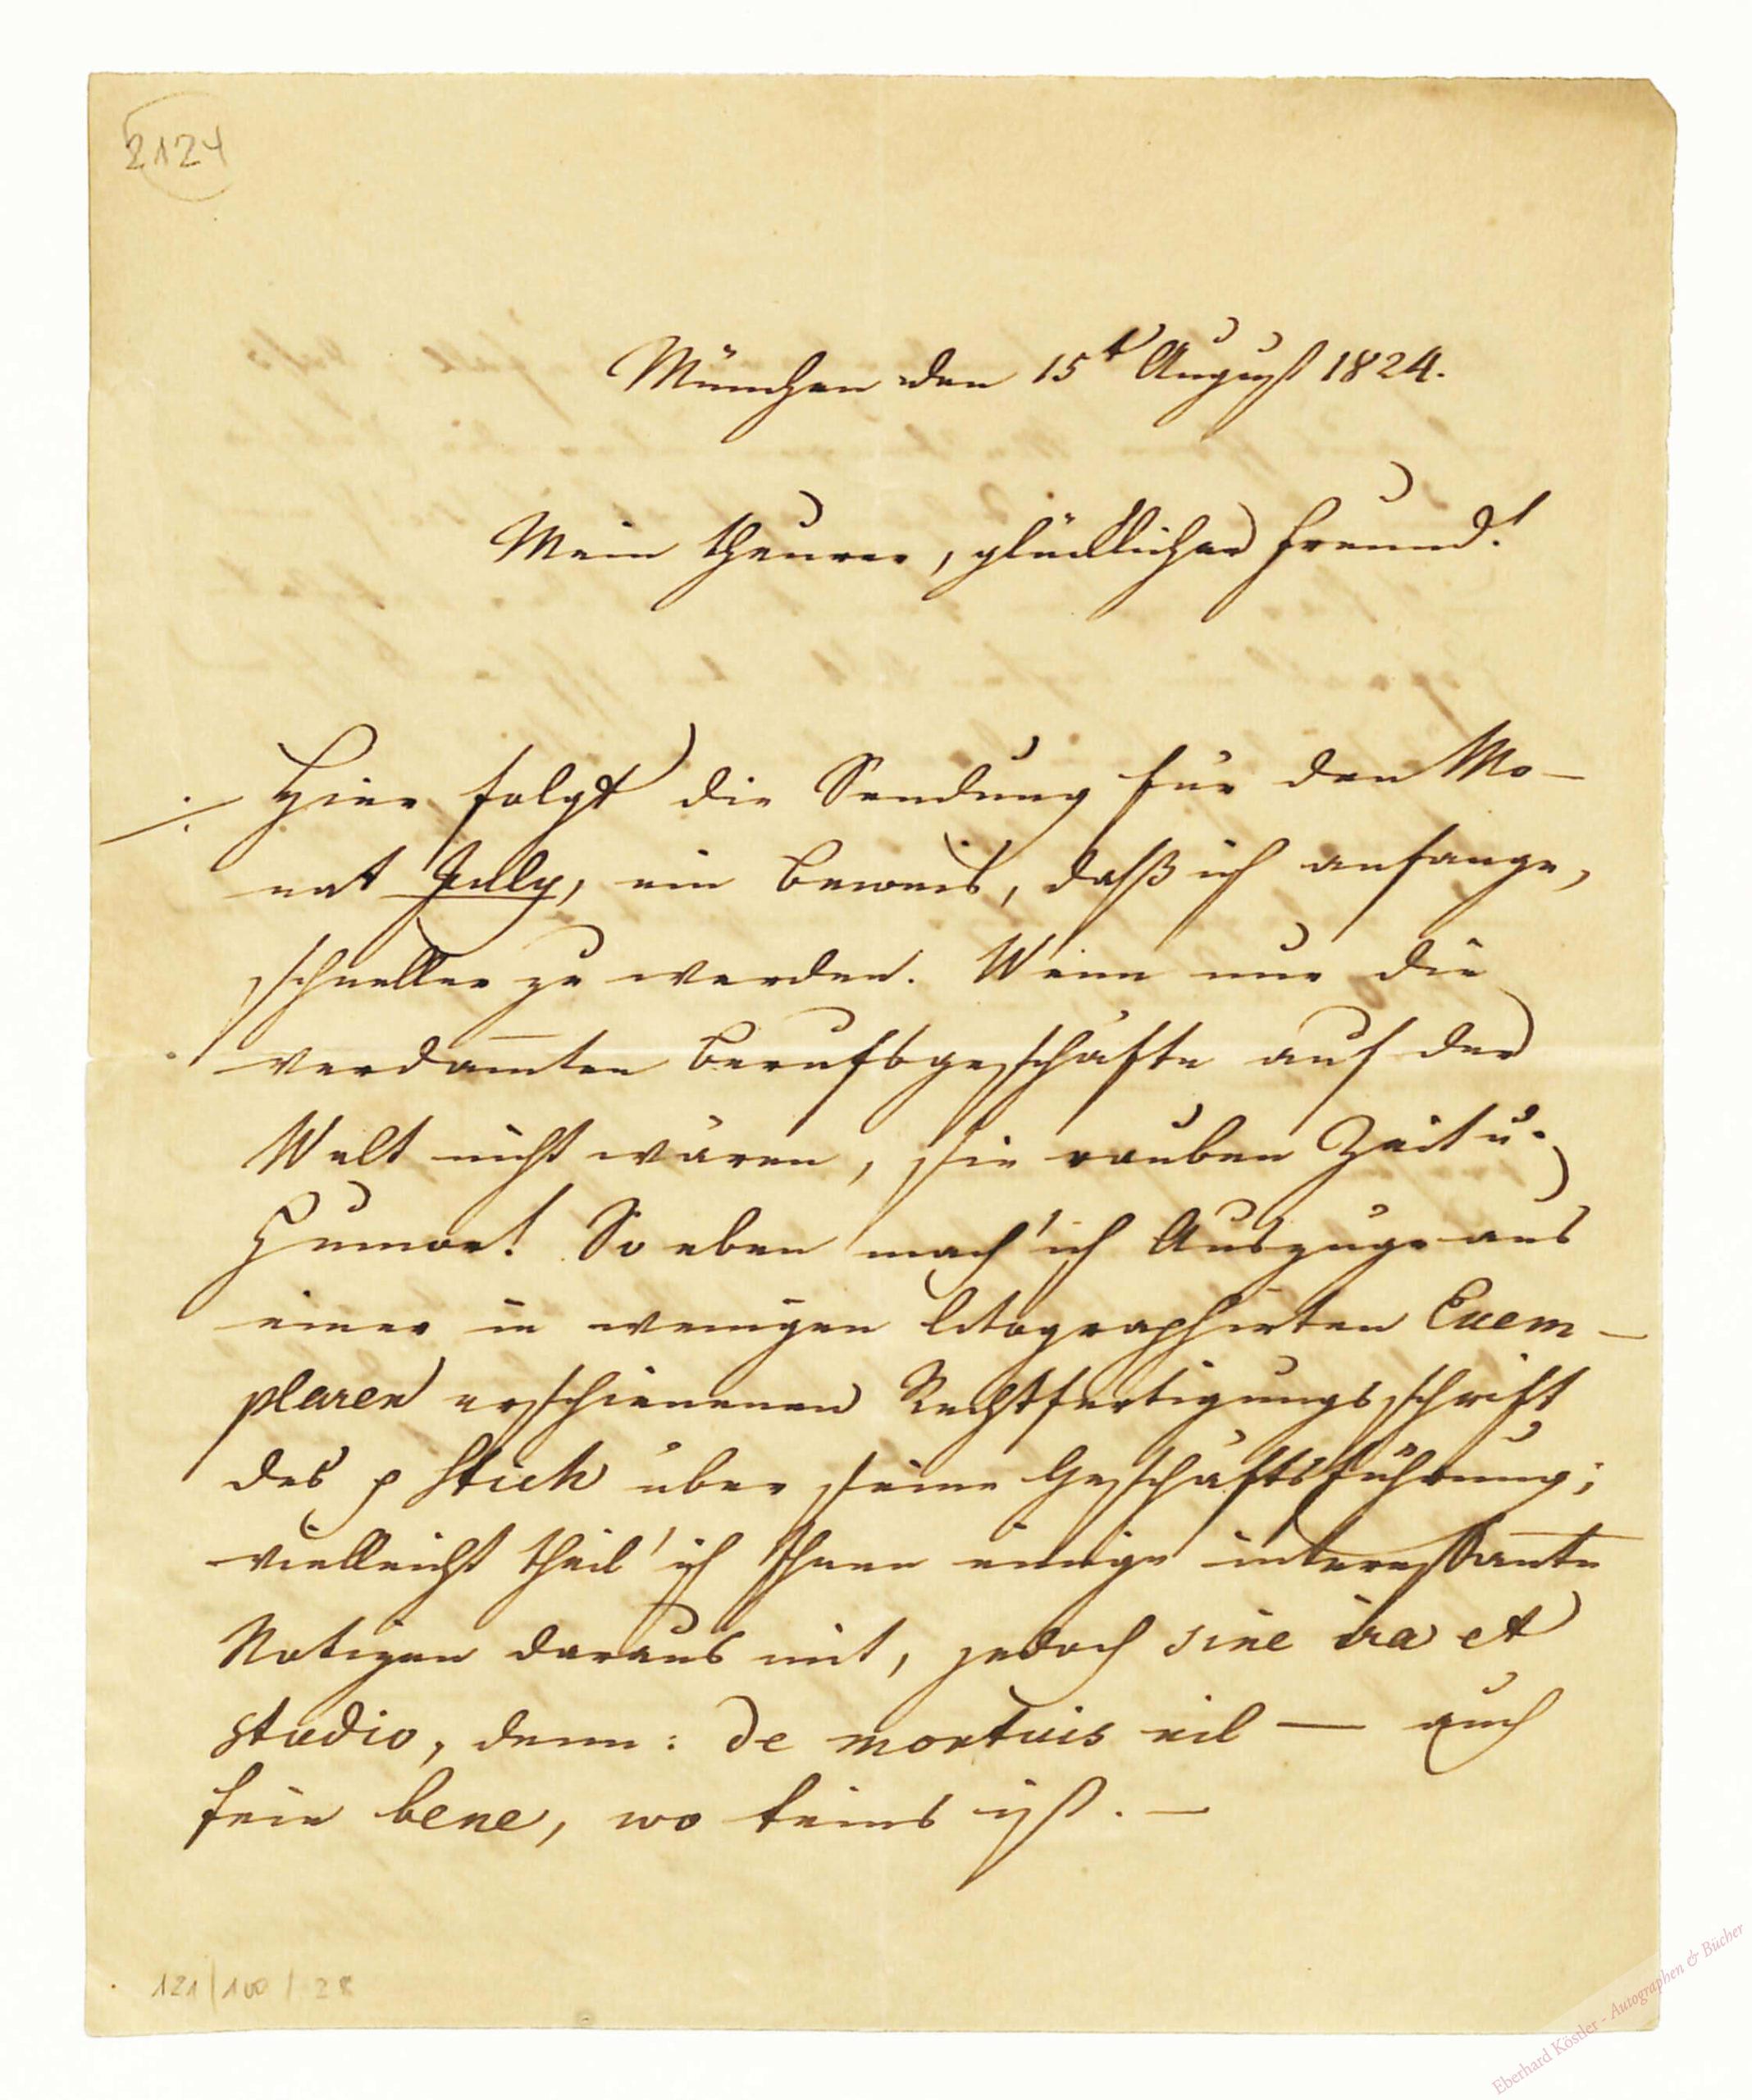 2124
München den 15t August 1824.
Mein theurer, glücklicher Freund!
Hier folgt die Sendung für den Mo-
nat July, ein Beweis, daß ich anfange,
schneller zu werden. Wenn nur die
verdam̄ten Berufsgeschäfte auf der
Welt nicht wären, sie rauben Zeit u.
Humor! So eben mach' ich Auszüge aus
einer in wenigen litographirten Exem-
plaren erschienenen Rechtfertigungsschrift
des p Stich über seine Geschäftsführung;
vielleicht theil' ich Ihnen einige interessante
Notizen daraus mit, jedoch sine ira et
studio, denn: de mortuis nil — auch
kein bene, wo keins ist. —
121/100/28
Eberhard Köstler - Autographen & Bücher